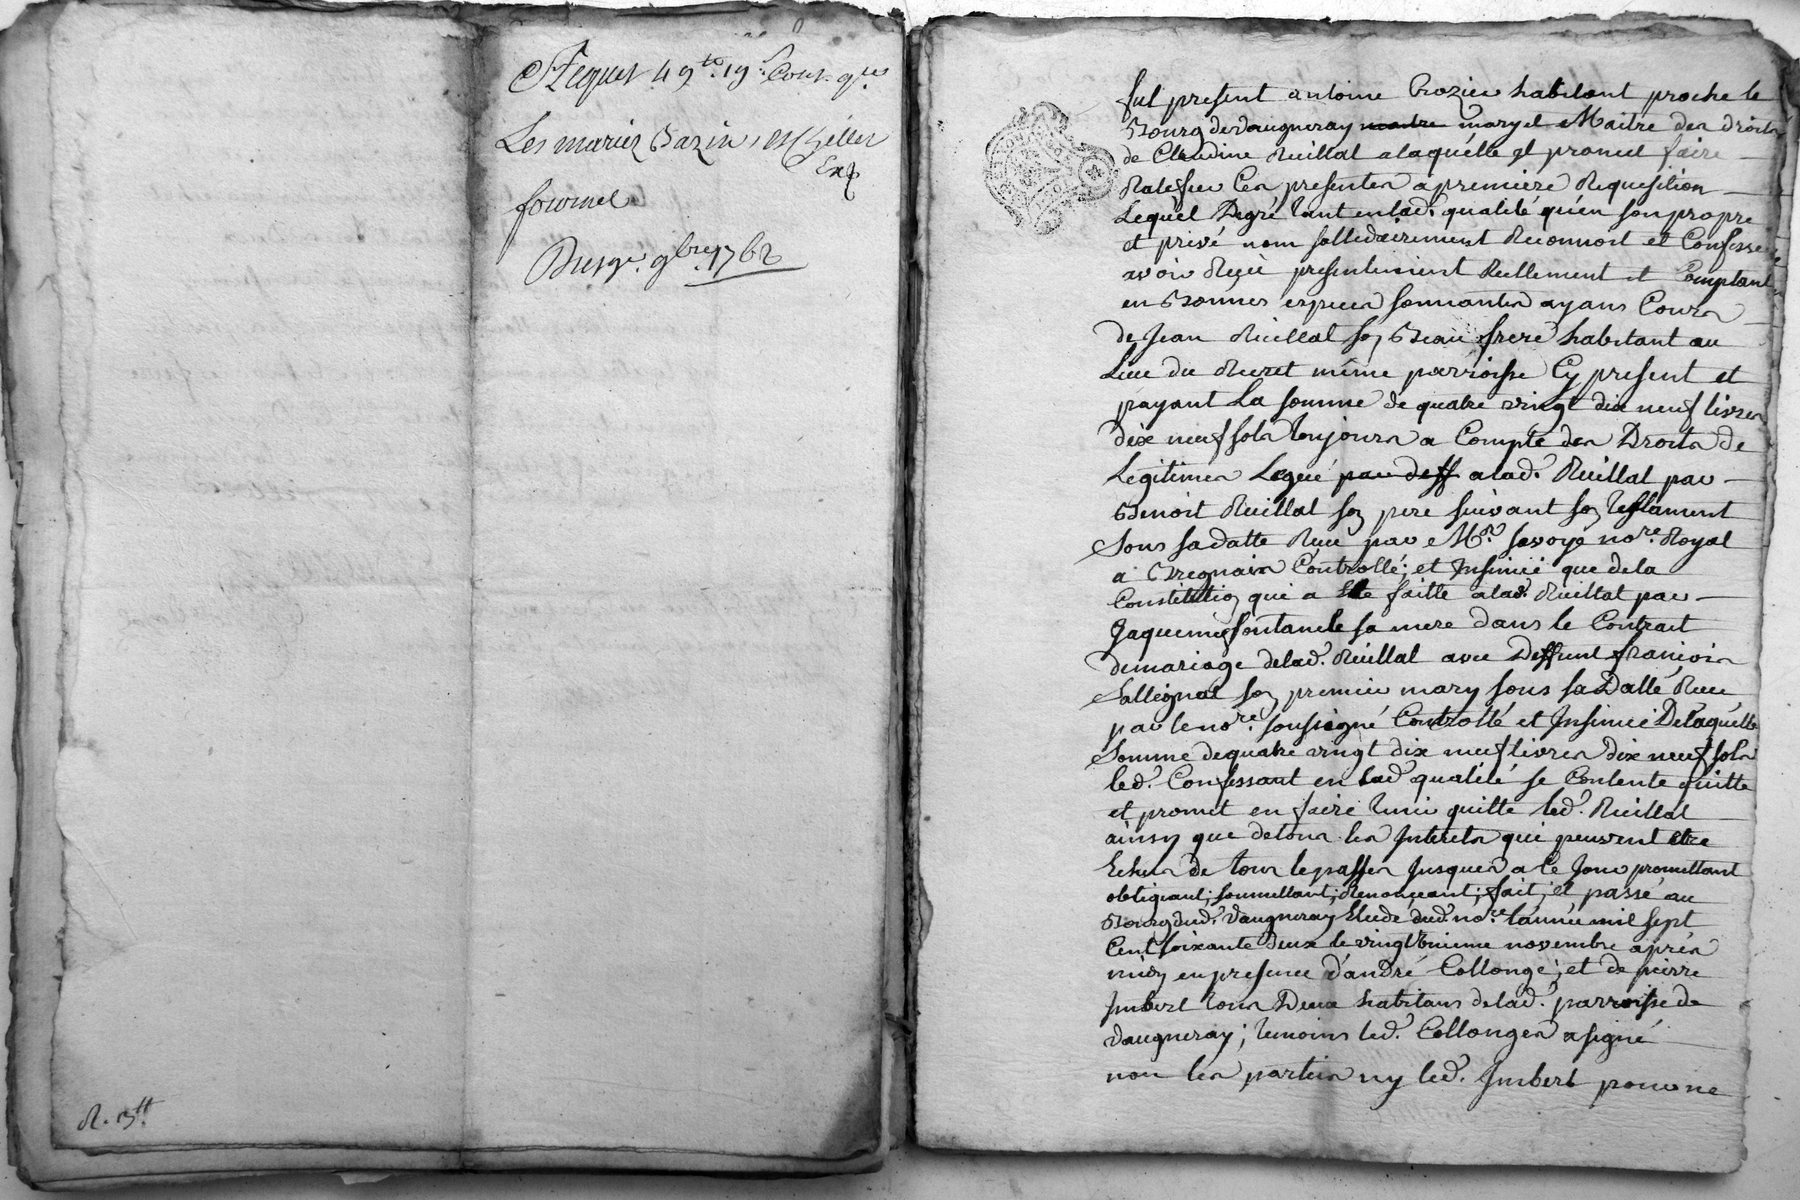 49 tt. 19 s.
Les mariez Bazin,
Exp
fournel
Du 9bre 1762
R. 3 tt
fut present antoine Crozier habitant proche le
Bourg de Vaugneray mary et Maitre des droits
de Claudine Ruillat alaquelle il promet faire
Ratefier Ces presentes a premiere Requesition
Lequel Degré tant en lad. qualité qu'en son propre
et privé nom sollidairement Reconnoit et Confesse
avoir Reçeu presentement Réellement et Comptant
en Bonnes especes sonnantes ayans Cours
de Jean Ruillat son Beau frere habitant au
Lieu du Recret même parroisse Cy present et
payant La somme de quatre vingt dix neuf livres
dix neuf sols toujours a Compte des Droits de
Légitimes Legué par deff alad. Ruillat par
Benoit Ruillat son pere suivant son testament
sous sa datte Reçu par Me. Savoye nore. Royal
a Bregnais Controllé; et Insinué que de la
Constitution qui a Eté faitte alad. Ruillat par
Jaquemie fontanele sa mere dans le Contrait
de mariage delad. Ruillat avec Deffunt françois
son premier mary sous sa Datte Reçu
par le nore. soussigné Controllé et Insinué De laquelle
somme de quatre vingt dix neuf livres dix neuf sols
led. Confessant en lad. qualité se Contente quitte
et promet en faire tenir quitte led. Ruillat
ainsy que de tous les Interets qui peuvent etre
Echus de tour le passer Jusques a Ce Jour promettant
obligeant; soumettant; Renonceant; fait; et passé au
Bourg dud. Vaugneray Etude dud. nore. l'année mil sept
Cent soixante deux le vingtunieme novembre après
midy en presence d'andré Collonge; et de pierre
Imbert tous Deux habitans delad. parroisse de
Vaugneray; temoins led. Collonges a signé
non les parties ny led. Imbert pour ne